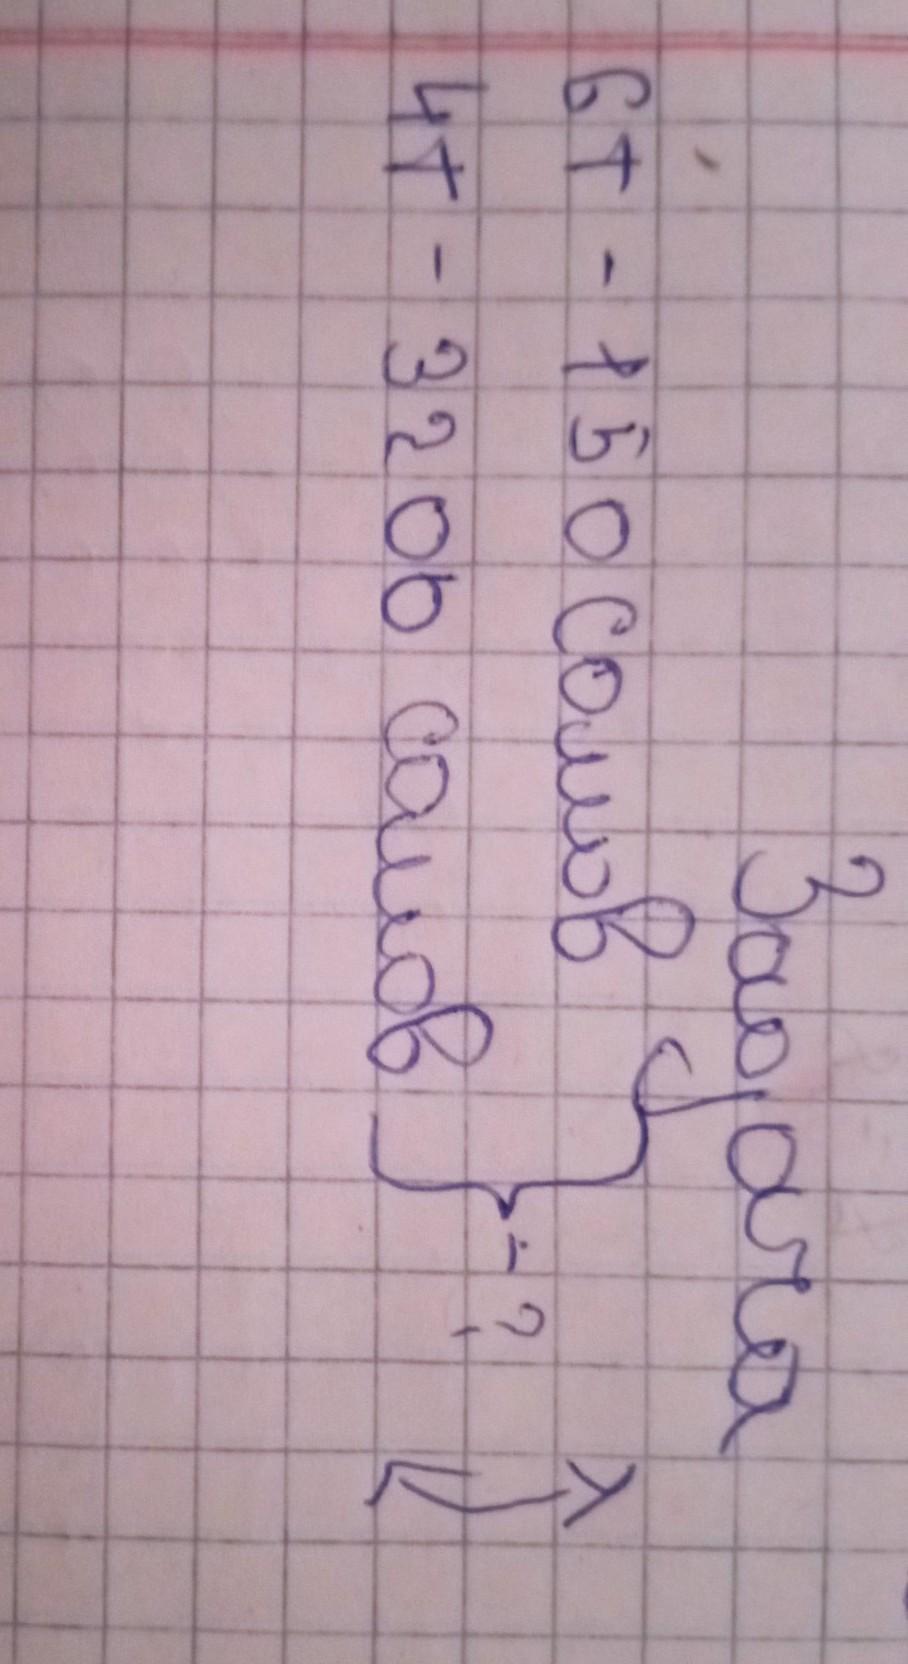 Задача
6т - 150 сомов
4т - 320б самов } - ?